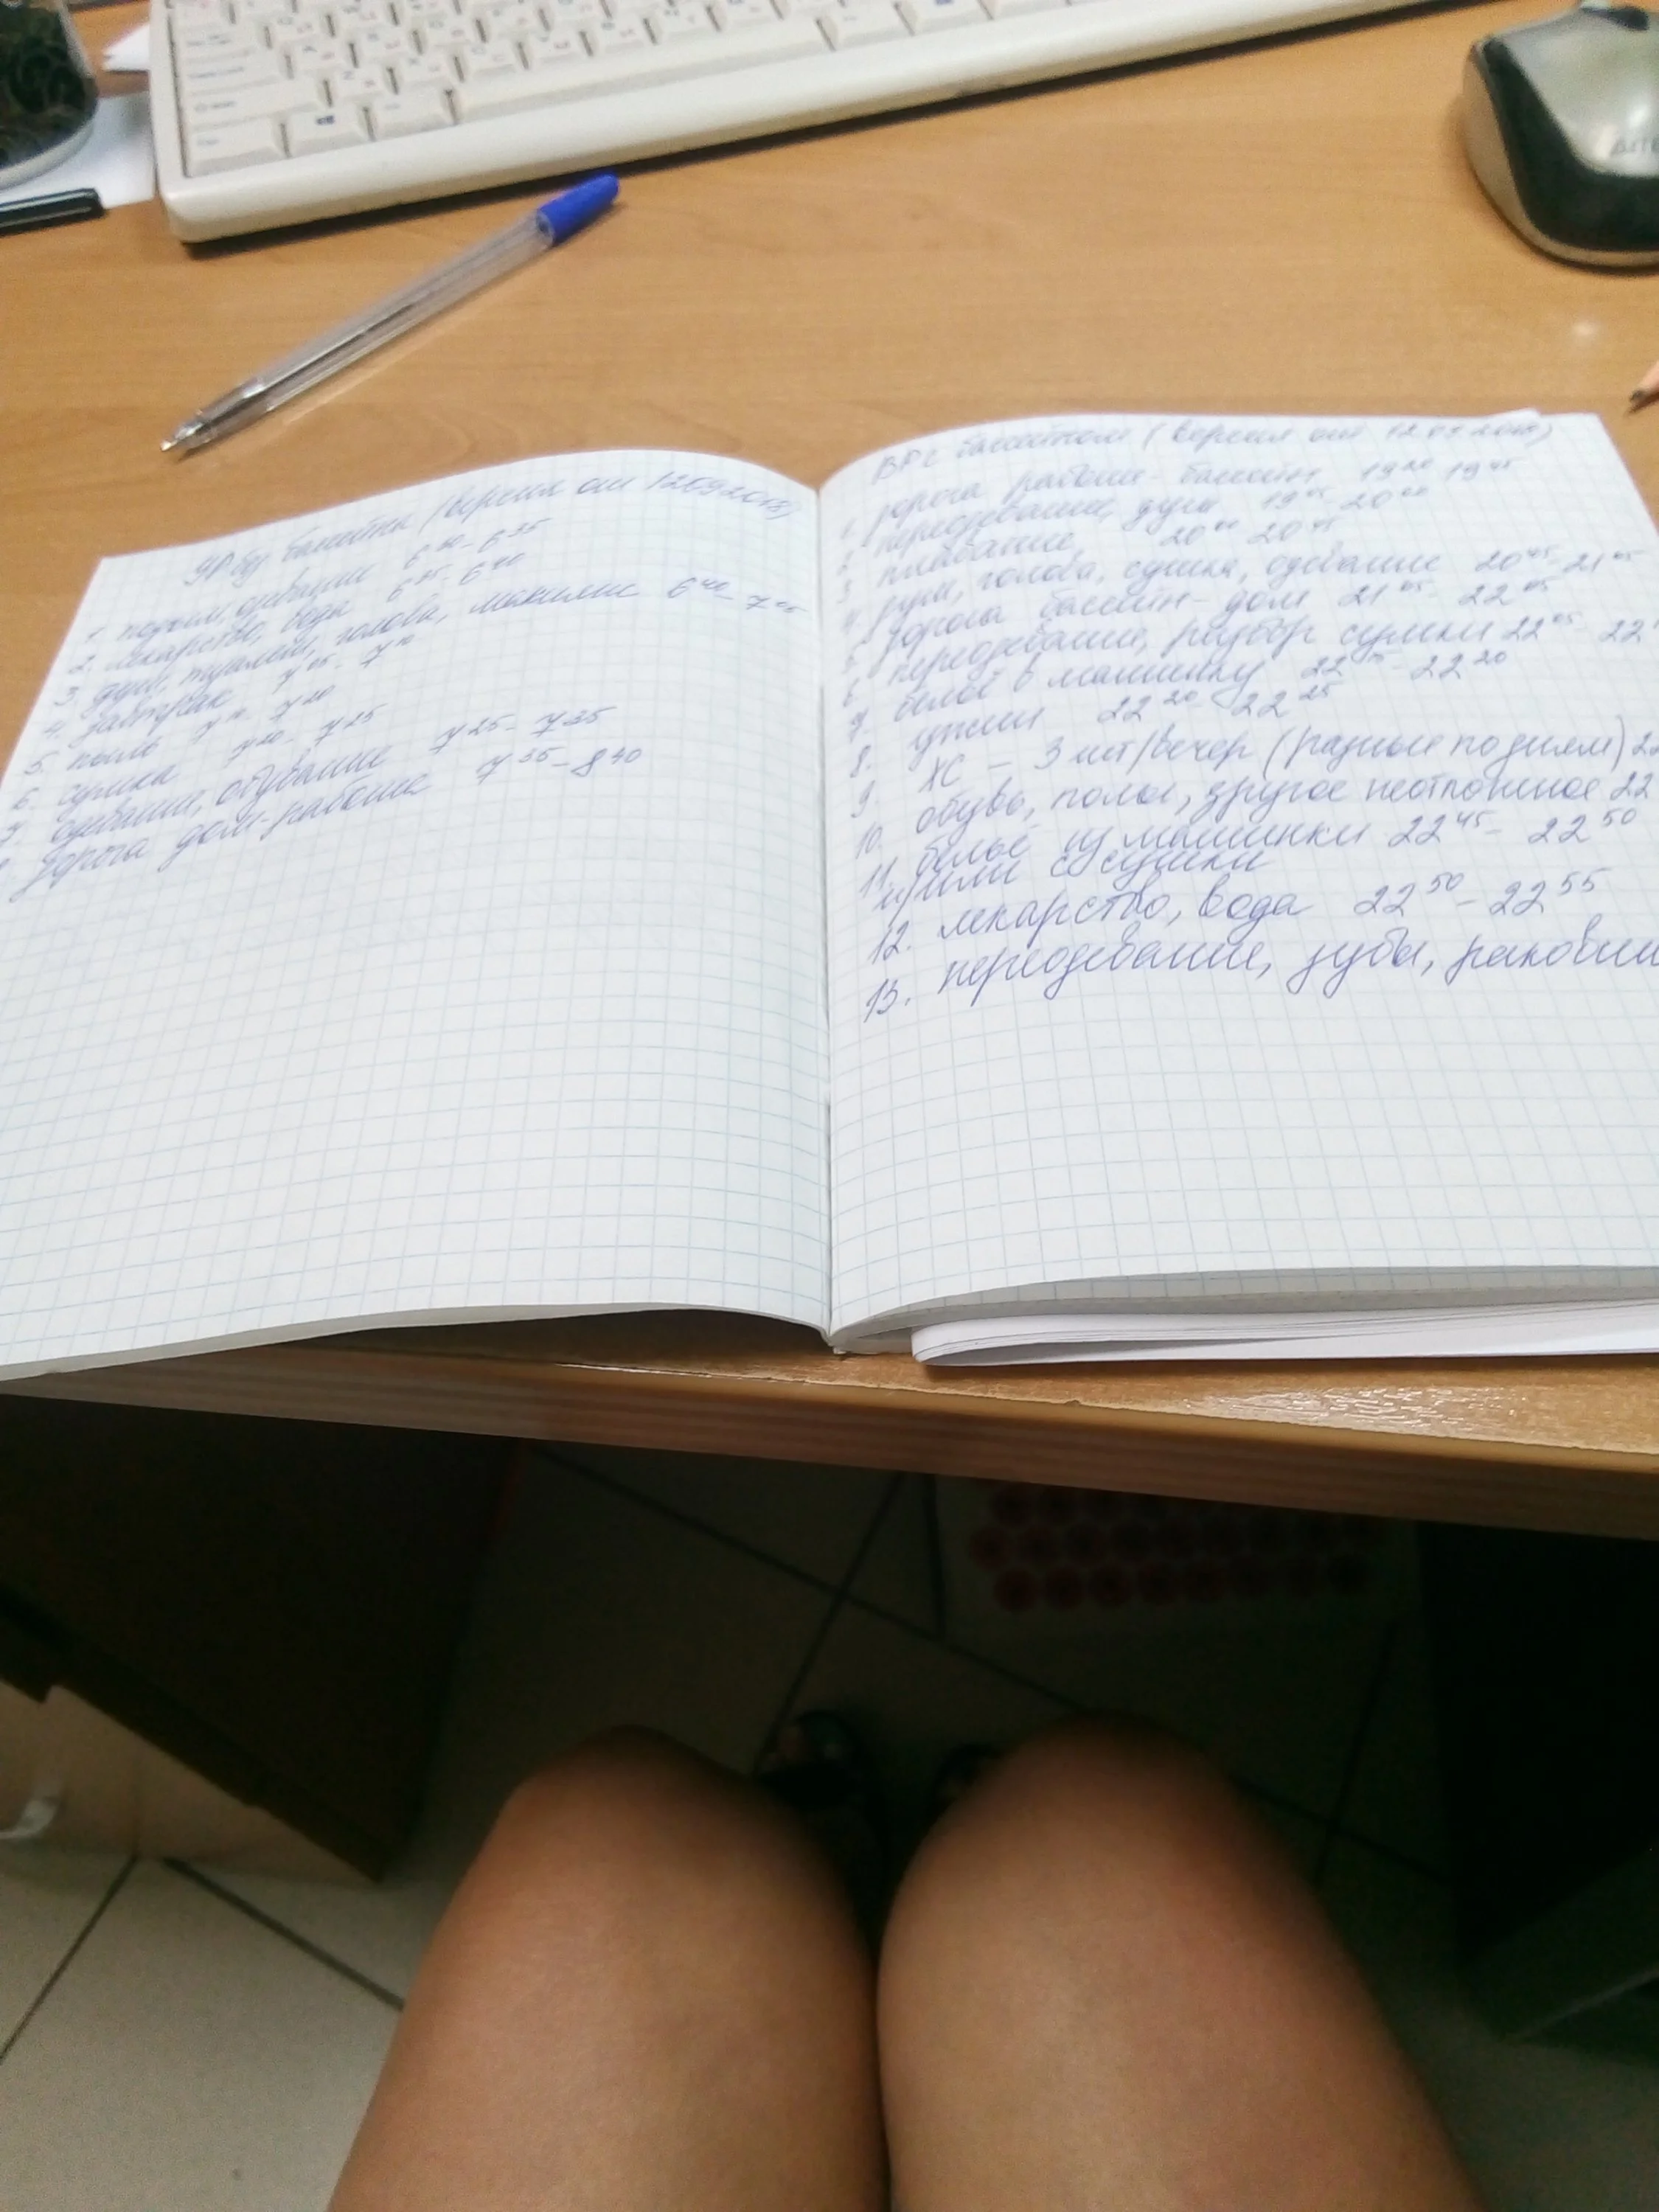 УР бу бассейна (версия от 12092018)
1. подъем, одевание 6 30 - 6 35
2. лекарство, вода 6 35 - 6 40
3. душ, туалет, голова, макияж 6 40 - 7 05
4. завтрак 7 05 - 7
5. пыль 7 - 7 20
6. сушка 7 20 - 7 25
7. одевание, обувание 7 25 - 7 35
дорога дом-работа 7 35 - 8 40
ВР с бассейном (версия от 12.09.2018)
1 дорога работа - бассейн 19 20 19 45
2 переодевание, душ 19 45 - 20 00
3 плавание 20 00 20 45
4. душ, голова, сушка, одевание 20 45 - 21 05
5 дорога бассейн-дом 21 05 - 22 05
6 переодевание, разбор сумки 22 05 - 22
7. бельё в машинку 22 15 - 22 20
8. ужин 22 20 - 22 25
9. ХС - 3 шт/вечер (разные по дням) 22
10. обувь, полы, другое неотложное 22
11. бельё из машинки 22 45 - 22 50
или с сушки
12. лекарство, вода 22 50 - 22 55
13. переодевание, зубы,